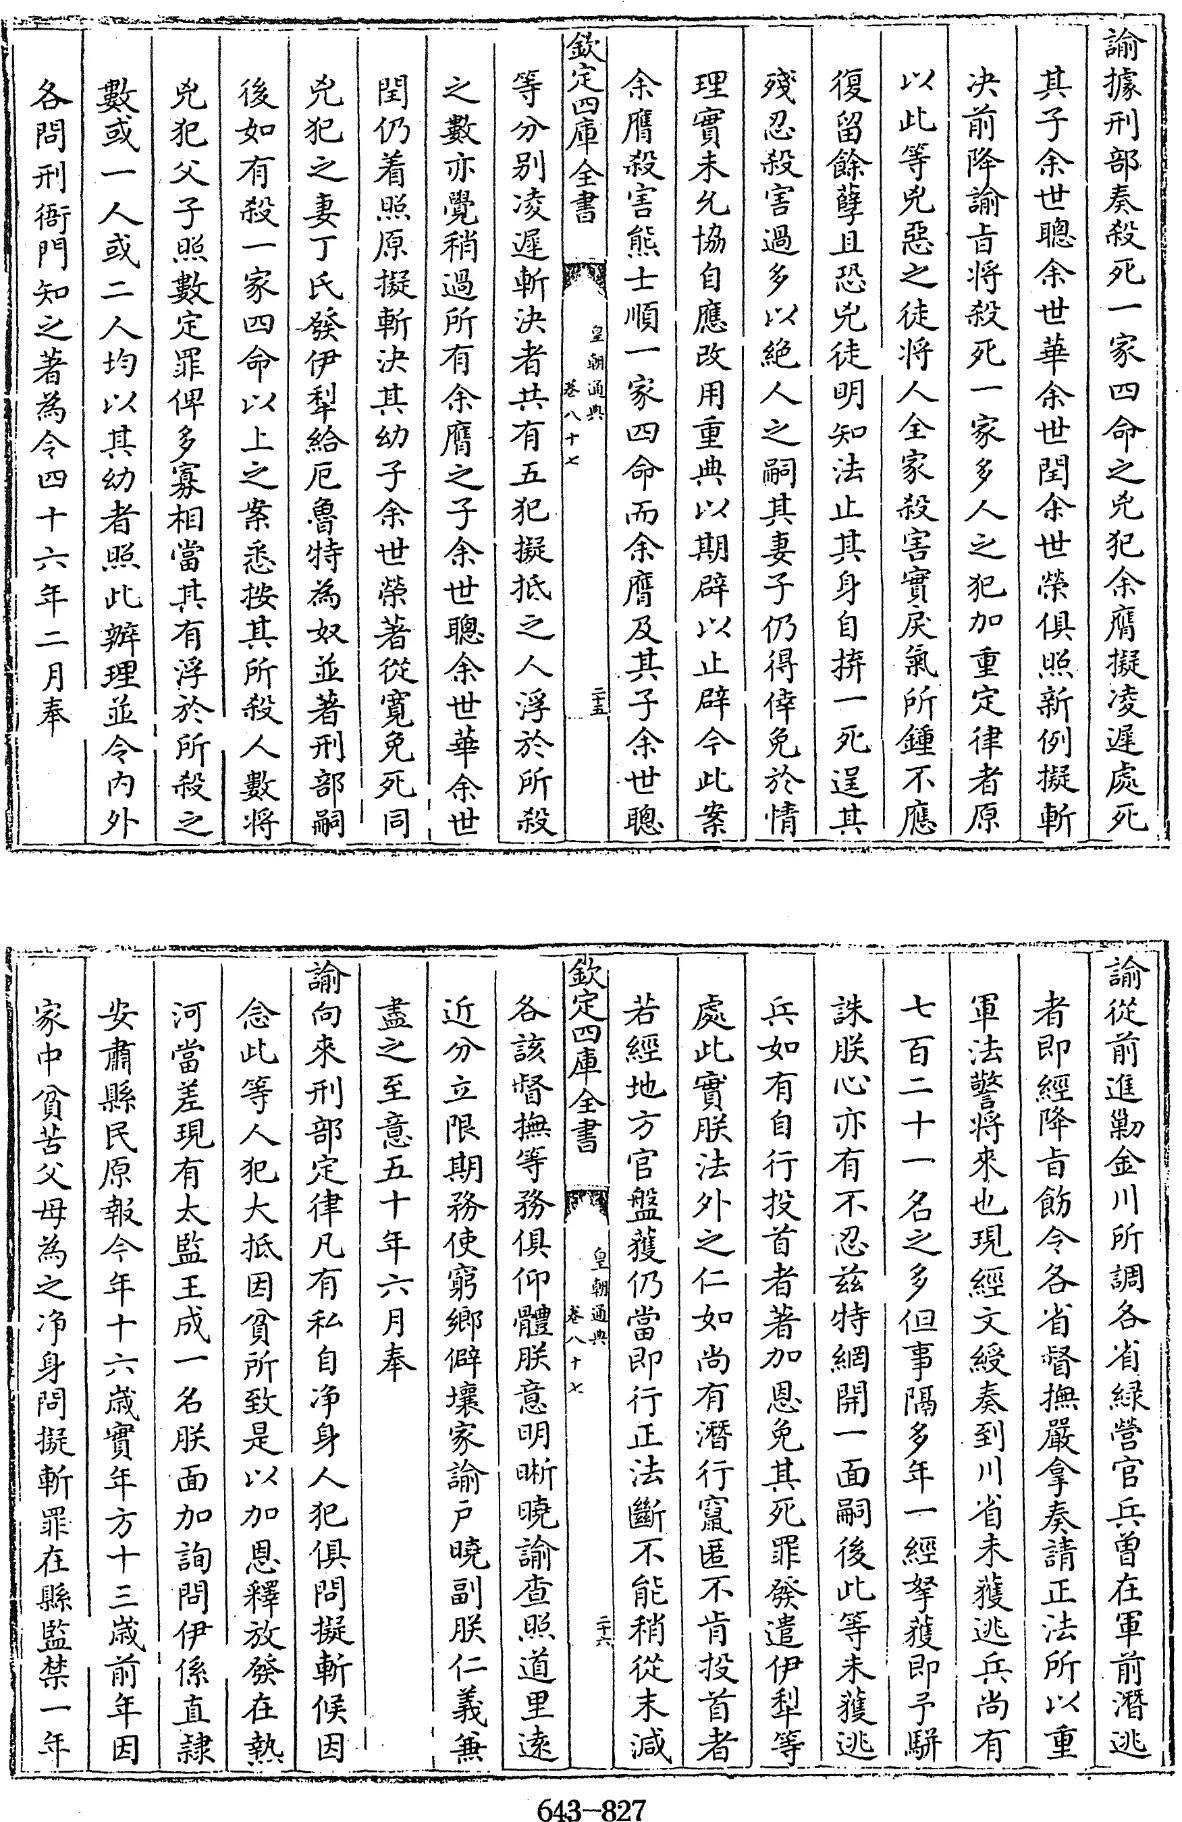 諭據刑部奏殺死一家四命之兇犯余膺擬凌遲處死
其子余世聰余世華余世閏余世榮俱照新例擬斬
決前降諭旨將殺死一家多人之犯加重定律者原
以此等兇惡之徒將人全家殺害實戾氣所鍾不應
復留餘孽且恐兇徒明知法止其身自拚一死逞其
殘忍殺害過多以絶人之嗣其妻子仍得倖免於情
理實未允協自應改用重典以期辟以止辟今此案
余膺殺害熊士順一家四命而余膺及其子余世聰
欽定四庫全書
皇朝通典
卷八十七
二十五
等分別凌遲斬決者共有五犯擬抵之人浮於所殺
之數亦覺稍過所有余膺之子余世聰余世華余世
閏仍着照原擬斬決其幼子余世榮著從寛免死同
兇犯之妻丁氏發伊犂給厄魯特為奴並著刑部嗣
後如有殺一家四命以上之案悉按其所殺人數將
兇犯父子照數定罪俾多寡相當其有浮於所殺之
數或一人或二人均以其幼者照此辦理並令內外
各問刑衙門知之著為令四十六年二月奉
諭從前進勦金川所調各省緑營官兵曾在軍前潛逃
者即經降旨飭令各省督撫嚴拿奏請正法所以重
軍法警將來也現經文綬奏到川省未獲逃兵尚有
七百二十一名之多但事隔多年一經拏獲即予駢
誅朕心亦有不忍兹特網開一面嗣後此等未獲逃
兵如有自行投首者著加恩免其死罪發遣伊犂等
處此實朕法外之仁如尚有潛行竄匿不肯投首者
若經地方官盤獲仍當即行正法斷不能稍從末減
欽定四庫全書
皇朝通典
卷八十七
二十六
各該督撫等務俱仰體朕意明晰曉諭查照道里遠
近分立限期務使窮鄉僻壤家諭户曉副朕仁義兼
盡之至意五十年六月奉
諭向來刑部定律凡有私自净身人犯俱問擬斬候因
念此等人犯大抵因貧所致是以加恩釋放發在熱
河當差現有太監王成一名朕面加詢問伊係直隸
安肅縣民原報今年十六歲實年方十三歲前年因
家中貧苦父母為之净身問擬斬罪在縣監禁一年
643-827